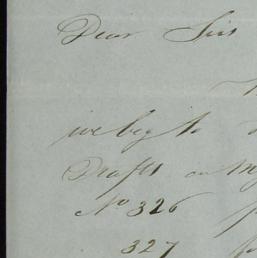 Dear Sirs
we beg to
Drafts on My
No 326
327